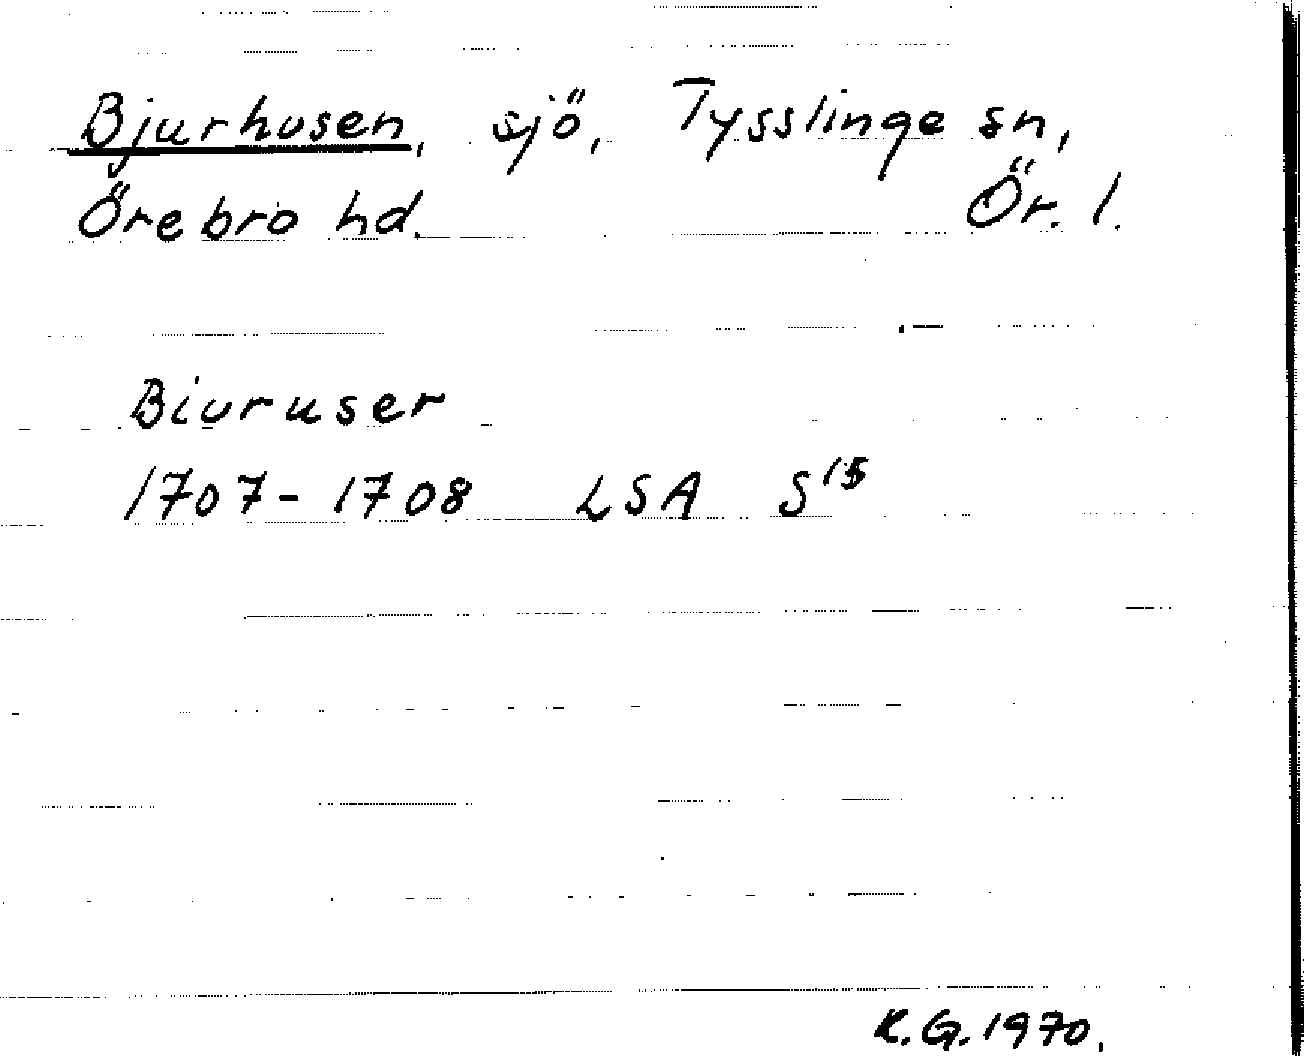 Bjurhusen, sjö, Tysslinge sn,
Örebro hd. Ör. l.
Biuruser
1707-1708 LSA S¹⁵
K.G. 1970.